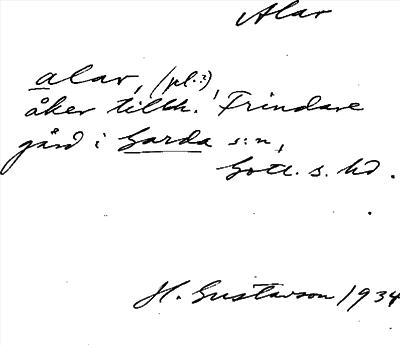 Alar
alar, (pl.?)
åker tillh. Frindare
gård i Garda s:n,
Gotl. s. hd.
H. Gustavson 1934